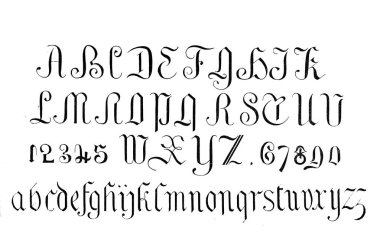 ABCDEFGHIJK
LMNOPQRSTUV
12345 WXYZ. 67890
abcdefghijklmnonqrstuvxyz3